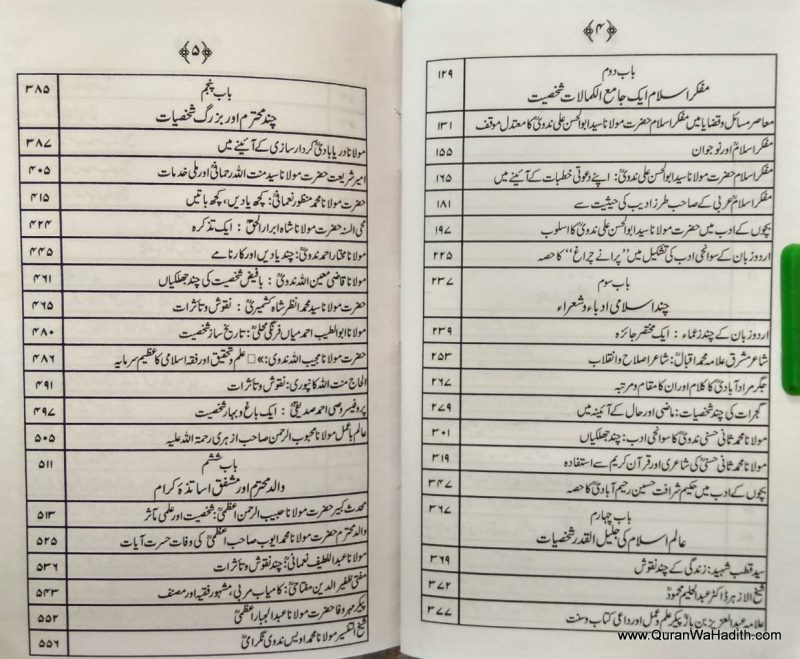 ﴿۴﴾
باب دوم
مفکر اسلام ایک جامع الکمالات شخصیت ۱۲۹
معاصر مسائل و قضایا میں مفکر اسلام حضرت مولانا سید ابوالحسن علی ندویؒ کا معتدل موقف ۱۳۱
مفکر اسلامؒ اور نوجوان ۱۵۵
مفکر اسلام حضرت مولانا سید ابوالحسن علی ندویؒ: اپنے دعوتی خطبات کے آئینے میں ۱۶۵
مفکر اسلامؒ عربی کے صاحب طرز ادیب کی حیثیت سے ۱۸۱
بچوں کے ادب میں حضرت مولانا سید ابوالحسن علی ندویؒ کا اسلوب ۱۹۷
اردو زبان کے سوانحی ادب کی تشکیل میں ’’پرانے چراغ‘‘ کا حصہ ۲۲۵
باب سوم
چند اسلامی ادباء و شعراء ۲۳۷
اردو زبان کے چند زعماء : ایک مختصر جائزہ ۲۳۹
شاعر مشرق علامہ محمد اقبالؒ: شاعر اصلاح و انقلاب ۲۵۳
جگر مرادآبادیؒ کا کلام اور ان کا مقام و مرتبہ ۲۶۷
گجرات کی چند شخصیات: ماضی اور حال کے آئینہ میں ۲۷۹
مولانا محمد ثانی حسنی ندویؒ کا سوانحی ادب: چند جھلکیاں ۳۰۱
مولانا محمد ثانی حسنیؒ کی شاعری اور قرآن کریم سے استفادہ ۳۱۹
بچوں کے ادب میں حکیم شرافت حسین رحیم آبادیؒ کا حصہ ۳۴۷
باب چہارم
عالم اسلام کی جلیل القدر شخصیات ۳۶۷
سید قطب شہید: زندگی کے چند نقوش ۳۶۹
شیخ الازہر ڈاکٹر عبدالحلیم محمودؒ ۳۷۲
علامہ عبدالعزیز بن بازؒ پیکر علم و عمل اور داعی کتاب و سنت ۳۷۷
﴿۵﴾
باب پنجم
چند محترم اور بزرگ شخصیات ۳۸۵
مولانا دریابادیؒ کردار سازی کے آئینے میں ۳۸۷
امیر شریعت حضرت مولانا سید منت اللہ رحمانیؒ اور ملی خدمات ۴۰۵
حضرت مولانا محمد منظور نعمانیؒ: کچھ یادیں، کچھ باتیں ۴۱۵
محی السنہ حضرت مولانا شاہ ابرار الحقؒ : ایک تذکرہ ۴۲۴
مولانا مختار احمد ندویؒ: چند یادیں اور کارنامے ۴۴۵
مولانا قاضی معین اللہ ندویؒ : بافیض شخصیت کی چند جھلکیاں ۴۶۱
حضرت مولانا سید محمد انظر شاہ کشمیریؒ : نقوش و تأثرات ۴۶۵
مولانا ابوالطیب احمد میاں فرنگی محلیؒ: تاریخ ساز شخصیت ۴۸۰
حضرت مولانا مجیب اللہ ندویؒ: علم و تحقیق اور فقہ اسلامی کا عظیم سرمایہ ۴۸۶
الحاج منت اللہ کانپوریؒ: نقوش و تأثرات ۴۹۱
پروفیسر وصی احمد صدیقیؒ : ایک باغ و بہار شخصیت ۴۹۷
عالم باعمل مولانا محبوب الرحمن صاحب ازہری رحمۃ اللہ علیہ ۵۰۵
باب ششم
والد محترم اور مشفق اساتذۂ کرام ۵۱۱
محدث کبیر حضرت مولانا حبیب الرحمن اعظمیؒ: شخصیت اور علمی تأثر ۵۱۳
والد محترم حضرت مولانا محمد ایوب صاحب اعظمیؒ کی وفات حسرت آیات ۵۲۵
مولانا عبداللطیف نعمانیؒ: چند نقوش و تأثرات ۵۳۶
مفتی ظفیر الدین مفتاحیؒ: کامیاب مربی، مشہور فقیہ اور مصنف ۵۴۳
پیکر مہر و وفا حضرت مولانا عبدالجبار اعظمیؒ ۵۵۲
شیخ التفسیر مولانا محمد اویس ندوی نگرامیؒ ۵۵۶
www.QuranWaHadith.com